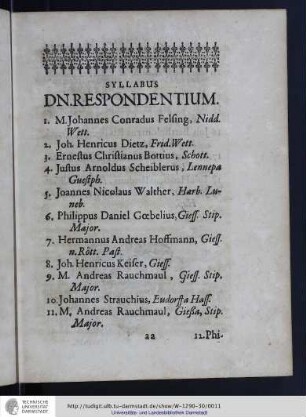 SYLLABUS
DN. RESPONDENTIUM.
1. M. Johannes Conradus Felsing, Nidd.
Wett.
2. Joh. Henricus Dietz, Frid. Wett.
3. Ernestus Christianus Bottius, Schott.
4. Justus Arnoldus Scheiblerus, Lennepa
Guestph.
5. Joannes Nicolaus Walther, Harb. Lu-
neb.
6. Philippus Daniel Gœbelius, Giess. Stip.
Major.
7. Hermannus Andreas Hoffmann, Giess.
n. Rött. Past.
8. Joh. Henricus Keiser, Giess.
9. M. Andreas Rauchmaul, Giess. Stip.
Major.
10. Johannes Strauchius, Eudorffa Hass.
11. M, Andreas Rauchmaul, Gießa, Stip.
Major.
aa 12. Phi-
TECHNISCHE
UNIVERSITÄT
DARMSTADT
http://tudigit.ulb.tu-darmstadt.de/show/W-1290-30/0011
Universitäts- und Landesbibliothek Darmstadt